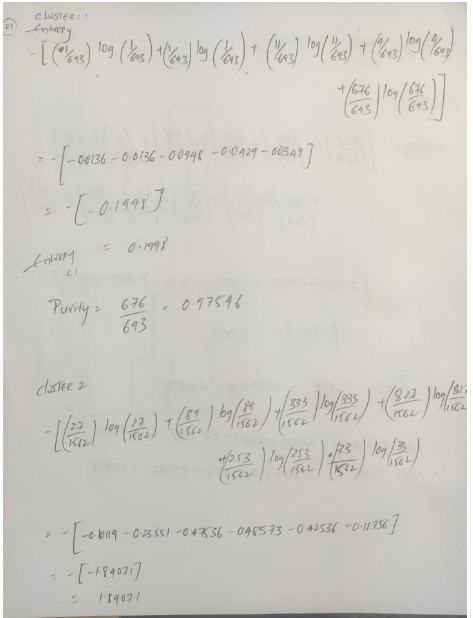 21) CLUSTER: 1
Entropy
- [ (1/693) log (1/693) + (1/693) log (1/693) + (11/693) log (11/693) + (4/693) log (4/693)
+ (676/693) log (676/693) ]
= - [ -0.0136 - 0.0136 - 0.0948 - 0.0429 - 0.0349 ]
= - [ -0.1998 ]
Entropy C1 = 0.1998
Purity = 676/693 = 0.97546
Cluster 2
- [ (27/1562) log (27/1562) + (89/1562) log (89/1562) + (333/1562) log (333/1562) + (827/1562) log (827/1562)
+ (253/1562) log (253/1562) + (33/1562) log (33/1562)
= - [ -0.10119 - 0.23551 - 0.47536 - 0.48573 - 0.42536 - 0.11756 ]
= - [ -1.84071 ]
= 1.84071